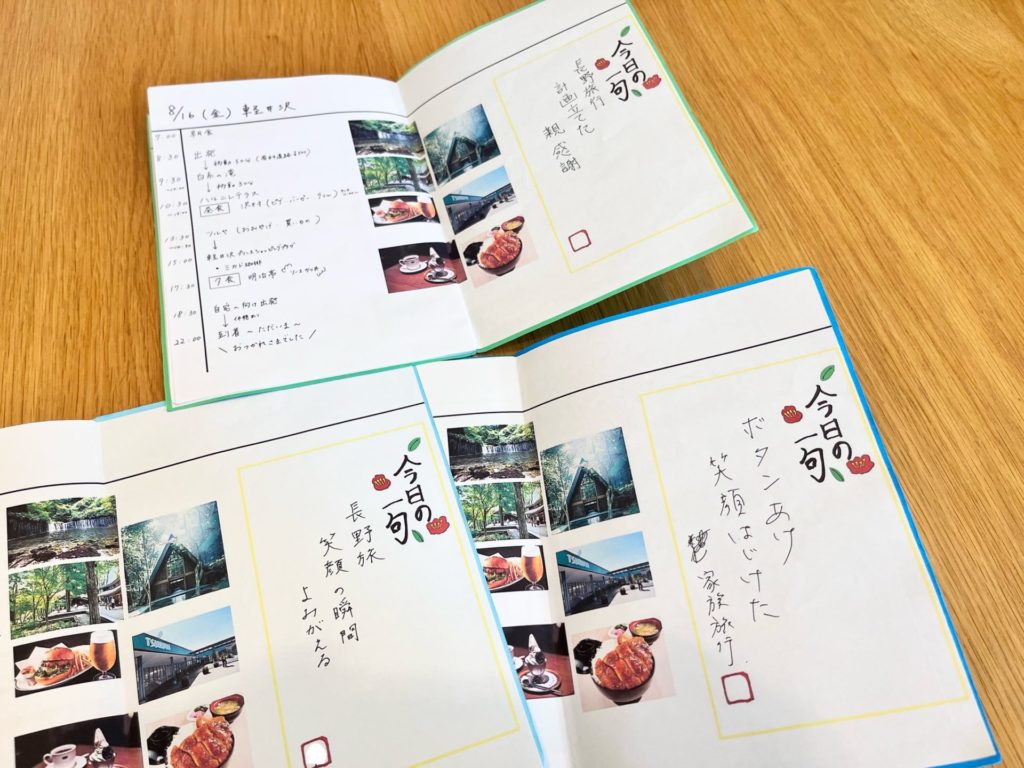 8/16(金) 軽井沢
7:00 朝食
8:30 出発
↓ 移動50分
9:30 白糸の滝
↓ 移動30分
10:30 ハルニレテラス
昼食 沢村(ピザ・バーガー
ツルヤ (おみやげ・買いもの)
↓
15:00 軽井沢プリンスショッピングプラザ
・ミカド珈琲
17:30 夕食 明治亭 "ソースカツ丼"
18:30 自宅へ向け出発
↓ 休憩あり
22:00 到着 〜ただいま〜
\ おつかれさまでした /
今日の一句
長野旅行
計画立てた
親感謝
今日の一句
長野旅
笑顔の瞬間
よみがえる
TSURUYA
今日の一句
ボタンあけ
笑顔はじけた
家族旅行.